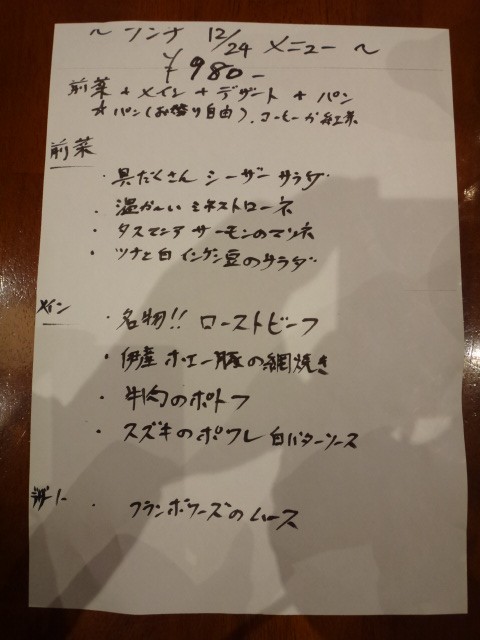 ～ランチ 12/24 メニュー ～
¥980-
前菜 + メイン + デザート + パン
☆パン(お替り自由). コーヒーか紅茶
前菜
・具だくさん シーザー サラダ
・温かーい ミネストローネ
・タスマニア サーモンのマリネ
・ツナと白インゲン豆のサラダ
メイン
・名物!! ローストビーフ
・伊産 ホエー豚の網焼き
・牛肉のポトフ
・スズキのポワレ 白バターソース
デザート
・フランボワーズのムース